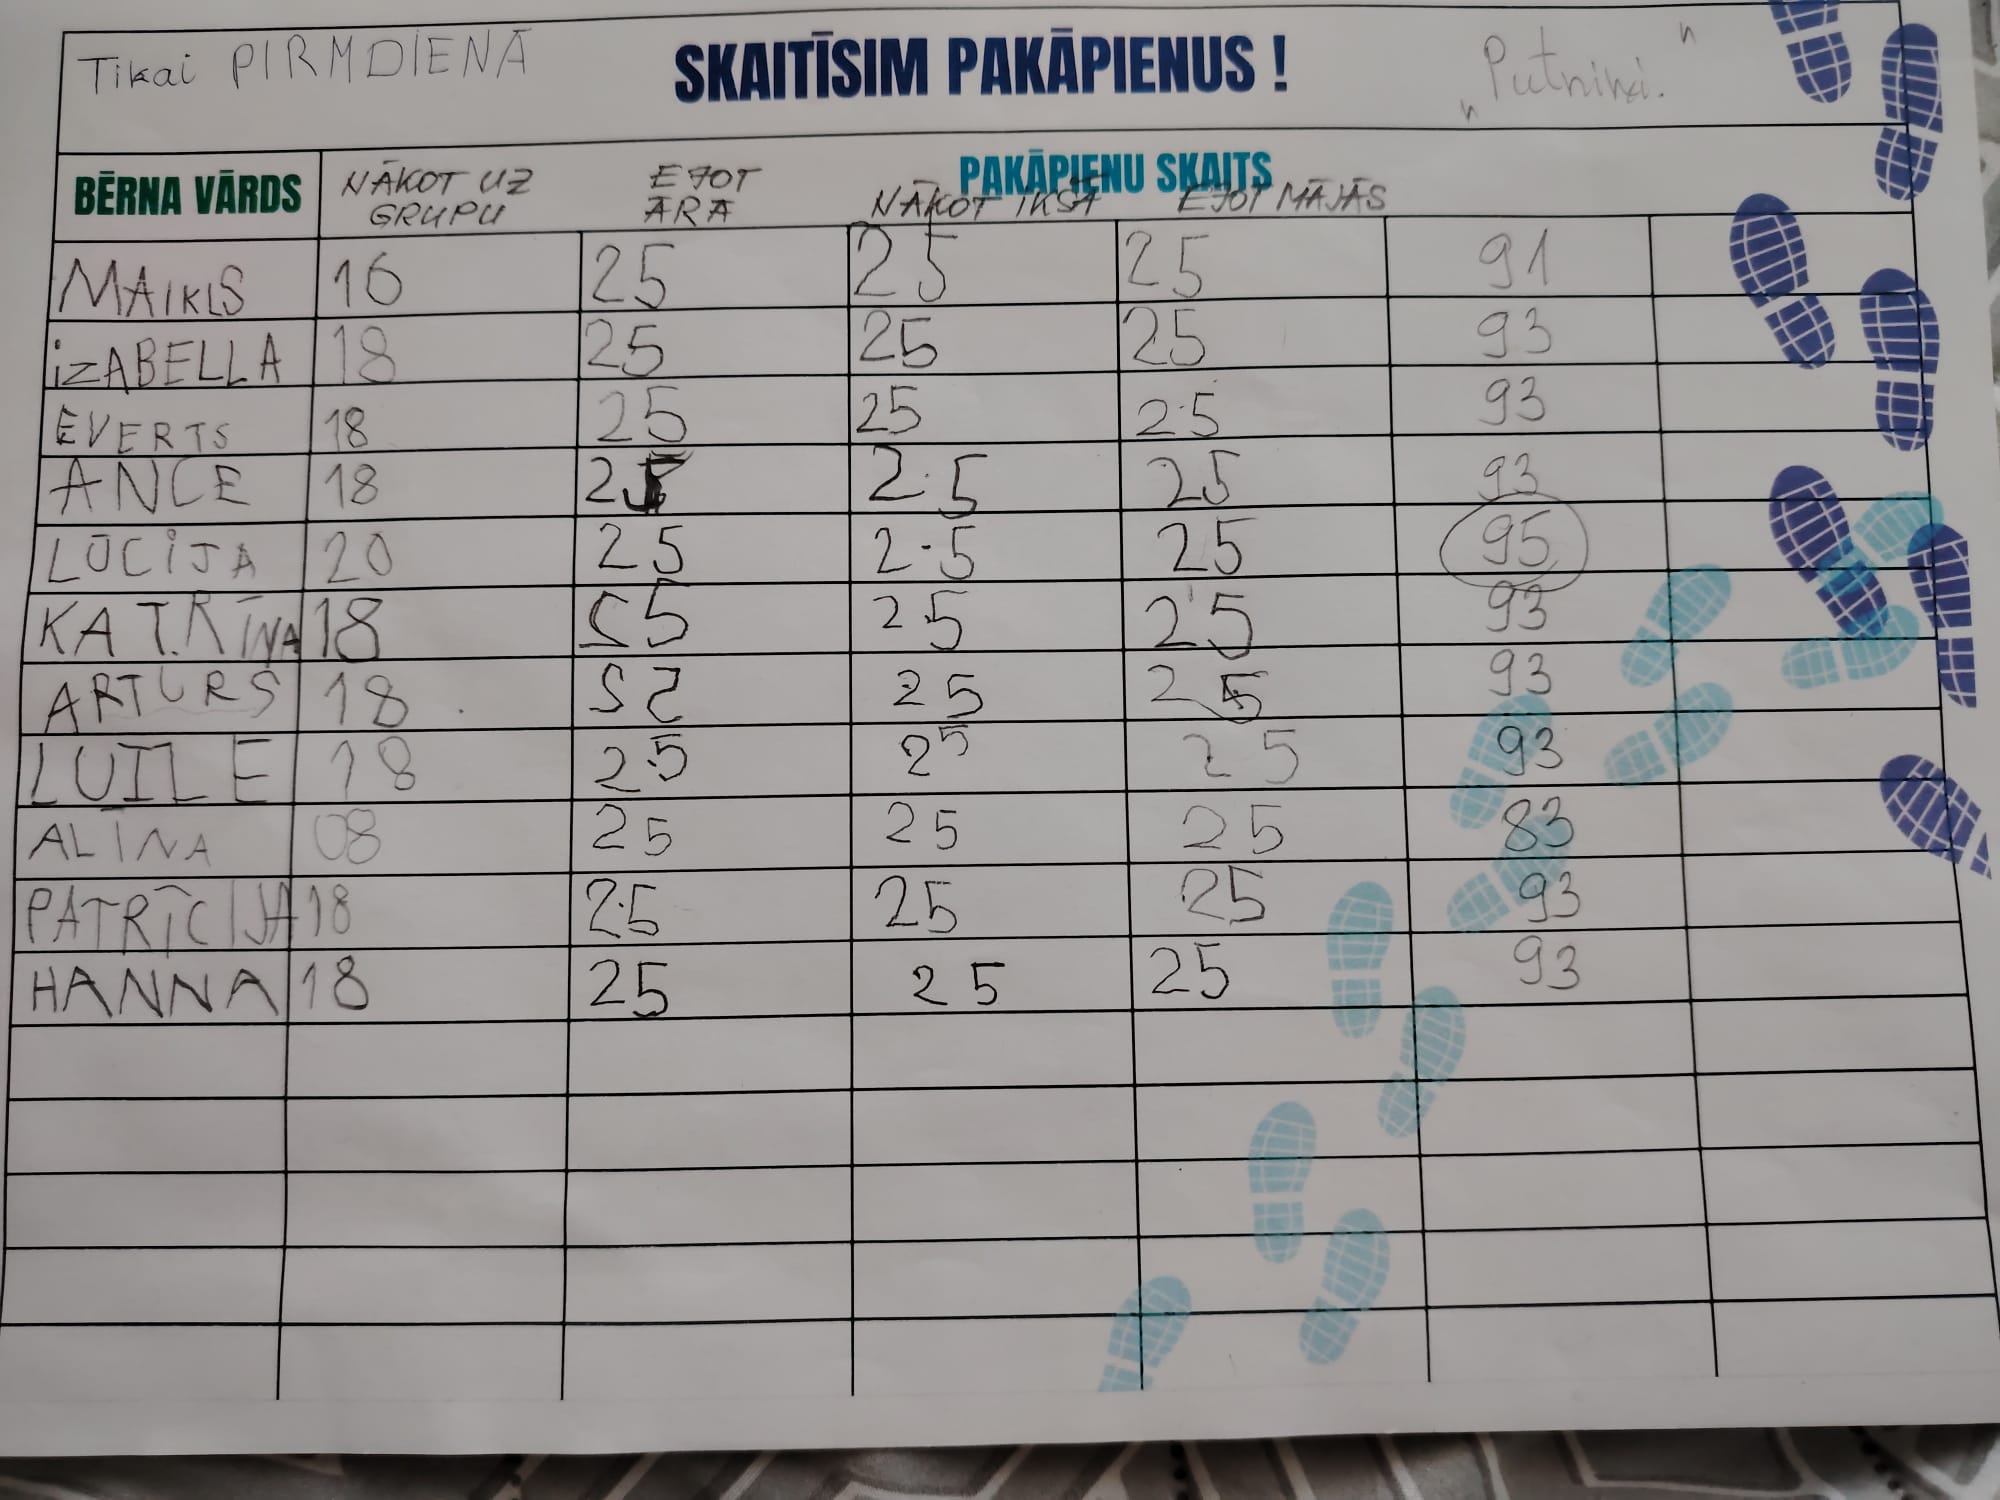 Tikai PIRMDIENĀ
SKAITĪSIM PAKĀPIENUS !
„Putniņi."
BĒRNA VĀRDS
PAKĀPIENU SKAITS
NĀKOT UZ GRUPU EJOT ĀRĀ NĀKOT IKŠĀ EJOT MĀJĀS
MAIKLS 16 25 25 25 91
iZABELLA 18 25 25 25 93
EVERTS 18 25 25 25 93
ANCE 18 25 25 25 93
LŪCIJA 20 25 25 25 95
KATRĪNA 18 25 25 25 93
ARTURS 18 25 25 25 93
LUĪLE 18 25 25 25 93
ALĪNA 08 25 25 25 83
PATRĪCIJA 18 25 25 25 93
HANNA 18 25 25 25 93